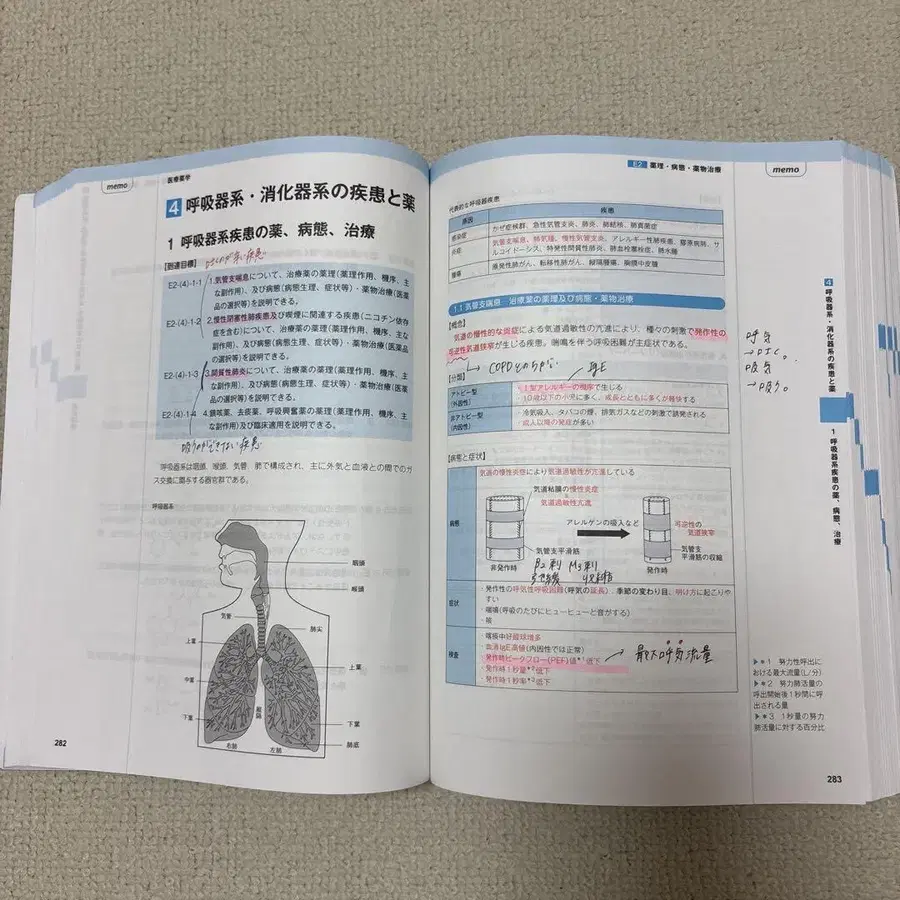 memo
医療薬学
4 呼吸器系・消化器系の疾患と薬
1 呼吸器系疾患の薬、病態、治療
【到達目標】
E2-(4)-1-1 1.気管支喘息について、治療薬の薬理(薬理作用、機序、主
な副作用)、及び病態(病態生理、症状等)・薬物治療(医薬
品の選択等)を説明できる。
E2-(4)-1-2 2.慢性閉塞性肺疾患及び喫煙に関連する疾患(ニコチン依存
症を含む)について、治療薬の薬理(薬理作用、機序、主な
副作用)、及び病態(病態生理、症状等)・薬物治療(医薬品
の選択等)を説明できる。
E2-(4)-1-3 3.間質性肺炎について、治療薬の薬理(薬理作用、機序、主
な副作用)、及び病態(病態生理、症状等)・薬物治療(医薬
品の選択等)を説明できる。
E2-(4)-1-4 4.鎮咳薬、去痰薬、呼吸興奮薬の薬理(薬理作用、機序、主
な副作用)及び臨床適用を説明できる。
吸うのができない疾患
呼吸器系は咽頭、喉頭、気管、肺で構成され、主に外気と血液との間でのガ
ス交換に関与する器官群である。
呼吸器系
咽頭
喉頭
気管
肺尖
上葉
上葉
中葉
下葉
下葉
縦隔
肺底
右肺
左肺
282
E2 薬理・病態・薬物治療
memo
代表的な呼吸器疾患
原因 疾患
感染症 かぜ症候群、急性気管支炎、肺炎、肺結核、肺真菌症
炎症 気管支喘息、肺気腫、慢性気管支炎、アレルギー性肺疾患、膠原病肺、サ
ルコイドーシス、特発性間質性肺炎、肺血栓塞栓症、肺水腫
腫瘍 原発性肺がん、転移性肺がん、縦隔腫瘍、胸膜中皮腫
1.1 気管支喘息 治療薬の薬理及び病態・薬物治療
【概念】
気道の慢性的な炎症による気道過敏性の亢進により、種々の刺激で発作性の
可逆性気道狭窄が生じる疾患。喘鳴を伴う呼吸困難が主症状である。
COPDとのちがい
IgE
【分類】
アトピー型
(外因性)
・Ⅰ型アレルギーの機序で生じる
・10歳以下の小児に多く、成長とともに多くが軽快する
非アトピー型
(内因性)
・冷気吸入、タバコの煙、排気ガスなどの刺激で誘発される
・成人以降の発症が多い
【病態と症状】
気道の慢性炎症により気道過敏性が亢進している
病態
気道粘膜の慢性炎症
気道過敏性亢進
アレルゲンの吸入など
可逆性の
気道狭窄
気管支
平滑筋
気管支
平滑筋の収縮
非発作時
発作時
β2刺
M3刺
症状
・発作性の呼気性呼吸困難(呼気の延長)、季節の変わり目、明け方に起こりや
すい
・喘鳴(呼吸のたびにヒューヒューと音がする)
・咳
検査
・喀痰中好酸球増多
・血清IgE高値(内因性では正常)
・発作時ピークフロー(PEF)値*1低下
・発作時1秒量*2低下
・発作時1秒率*3低下
→ 最大呼気流量
呼気
吸気
→吸う。
4 呼吸器系・消化器系の疾患と薬
1 呼吸器系疾患の薬、病態、治療
▶*1 努力性呼出に
おける最大流量(L/分)
▶*2 努力肺活量の
呼出開始後1秒間に呼
出される量
▶*3 1秒量の努力
肺活量に対する百分比
283